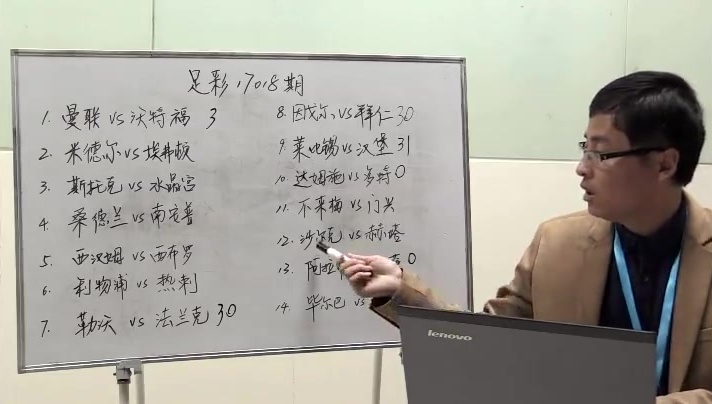 足彩17018期
1. 曼联 vs 沃特福 3
2. 米德尔 vs 埃弗顿
3. 斯托克 vs 水晶宫
4. 桑德兰 vs 南安普
5. 西汉姆 vs 西布罗
6. 利物浦 vs 热刺
7. 勒沃 vs 法兰克 30
8. 因戈尔 vs 拜仁 30
9. 莱比锡 vs 汉堡 31
10. 达姆施 vs 多特 0
11. 不来梅 vs 门兴
12. 沙尔克 vs 赫塔
13. 阿拉 0
14. 毕尔巴 vs
lenovo